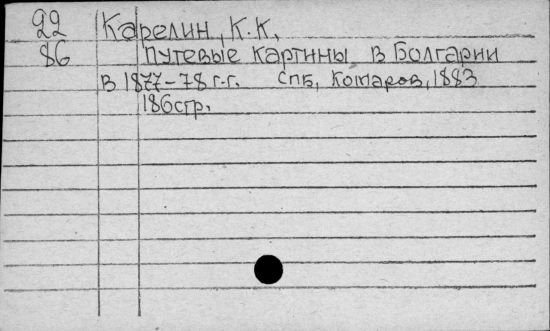 22 Карелин, К.К.
86 Путевые картины в Болгарии
в 1877-78 г.г. Спб, Комаров, 1883
186стр.